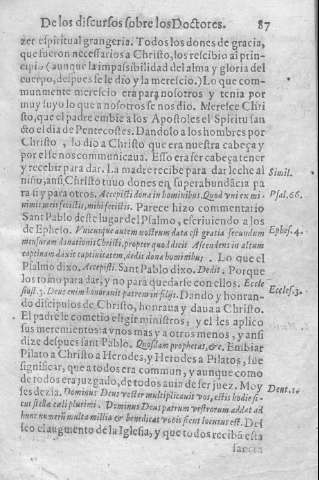 De los discursos sobre los Doctores. 87
zer espiritual grangeria. Todos los dones de gracia,
que fueron necessarios a Christo, los rescibio al prin-
cipio (aunque la impassibilidad del alma y gloria del
cuerpo, despues se le dio y la merescio.) Lo que com-
munmente merescio era para nosotros y tenia por
muy suyo lo que a nosotros se nos dio. Meresce Chri
sto, que el padre embie a los Apostoles el Spiritu san
cto el dia de Pentecostes. Dandolo a los hombres por
Christo, lo dio a Christo que era nuestra cabeça y
por el se nos communicaua. Esso era ser cabeça tener
y recebir para dar. La madre recibe para dar leche al
Simil.
niño, ansi Christo tuuo dones en superabundãcia pa
ra si y para otros. Accepisti dona in hominibus. Quod vni ex mi-
Psal. 66.
nimis meis fecistis, mihi fecistis. Parece hizo commentario
Sant Pablo deste lugar del Psalmo, escriuiendo a los
de Epheso. Vnicuique autem nostrum data est gratia secundum
Ephes. 4.
mensuram donationis Christi, propter quod dicit. Ascendens in altum
captiuam duxit captiuitatem, dedit dona hominibus. Lo que el
Psalmo dixo. Accepisti. Sant Pablo dixo. Dedit. Porque
los tomo para dar, y no para quedarse con ellos. Eccle
Eccles. 3.
siast. 3. Deus enim honorauit patrem in filijs. Dando y honran-
do discipulos de Christo, honraua y daua a Christo.
El padre le cometio eligir ministros, y el les aplico
sus merescimientos: a vnos mas y a otros menos, y ansi
dize despues sant Pablo. Quosdam prophetas, &c. Embiar
Pilato a Christo a Herodes, y Herodes a Pilatos, fue
significar, que a todos era commun, y aunque como
de todos era juzgado, de todos auia de ser juez. Moy
ses dezia. Dominus Deus vester multiplicauit vos, estis hodie si-
Deut. 1.
cut stellæ cæli plurimi. Dominus Deus patrum vestrorum addat ad
hunc numerũ multa millia & benedicat vobis sicut locutus est. Des
seo el augmento de la Iglesia, y que todos recibã esta